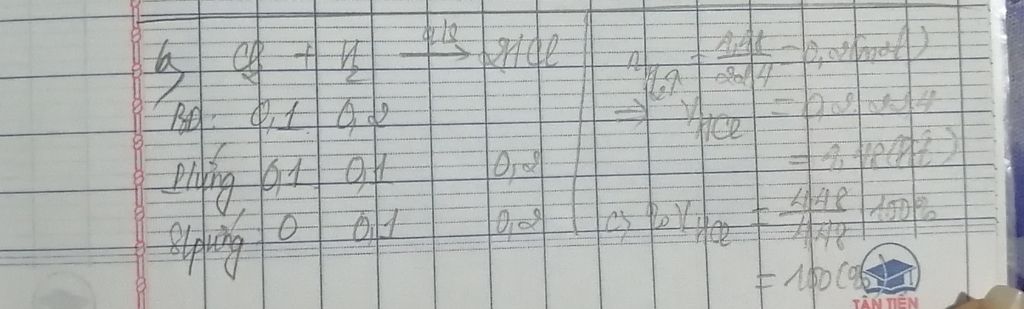 b, Cl2 + H2 → 2HCl
BĐ: 0,1 0,2
Pứng 0,1 0,1 0,2
Spứng 0 0,1 0,2
= 4,48/22,4 = 0,2(mol)
⇒ VHCl = 0,2.22,4
= 4,48(lít)
c, %VHCl = 4,48/4,48 .100%
= 100(%)
TÂN TIẾN